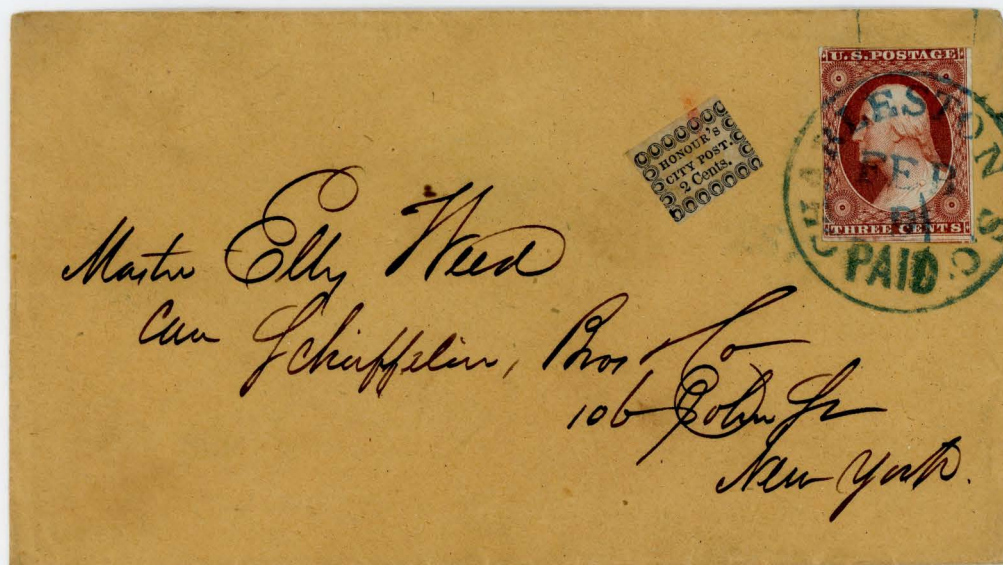 U.S. POSTAGE
THREE CENTS
CHARLESTON S.C.
FEB
PAID
HONOUR'S
CITY POST.
2 Cents.
Master Elly Weed
Care Schieffelin, Bros & Co
106 John St
New York.